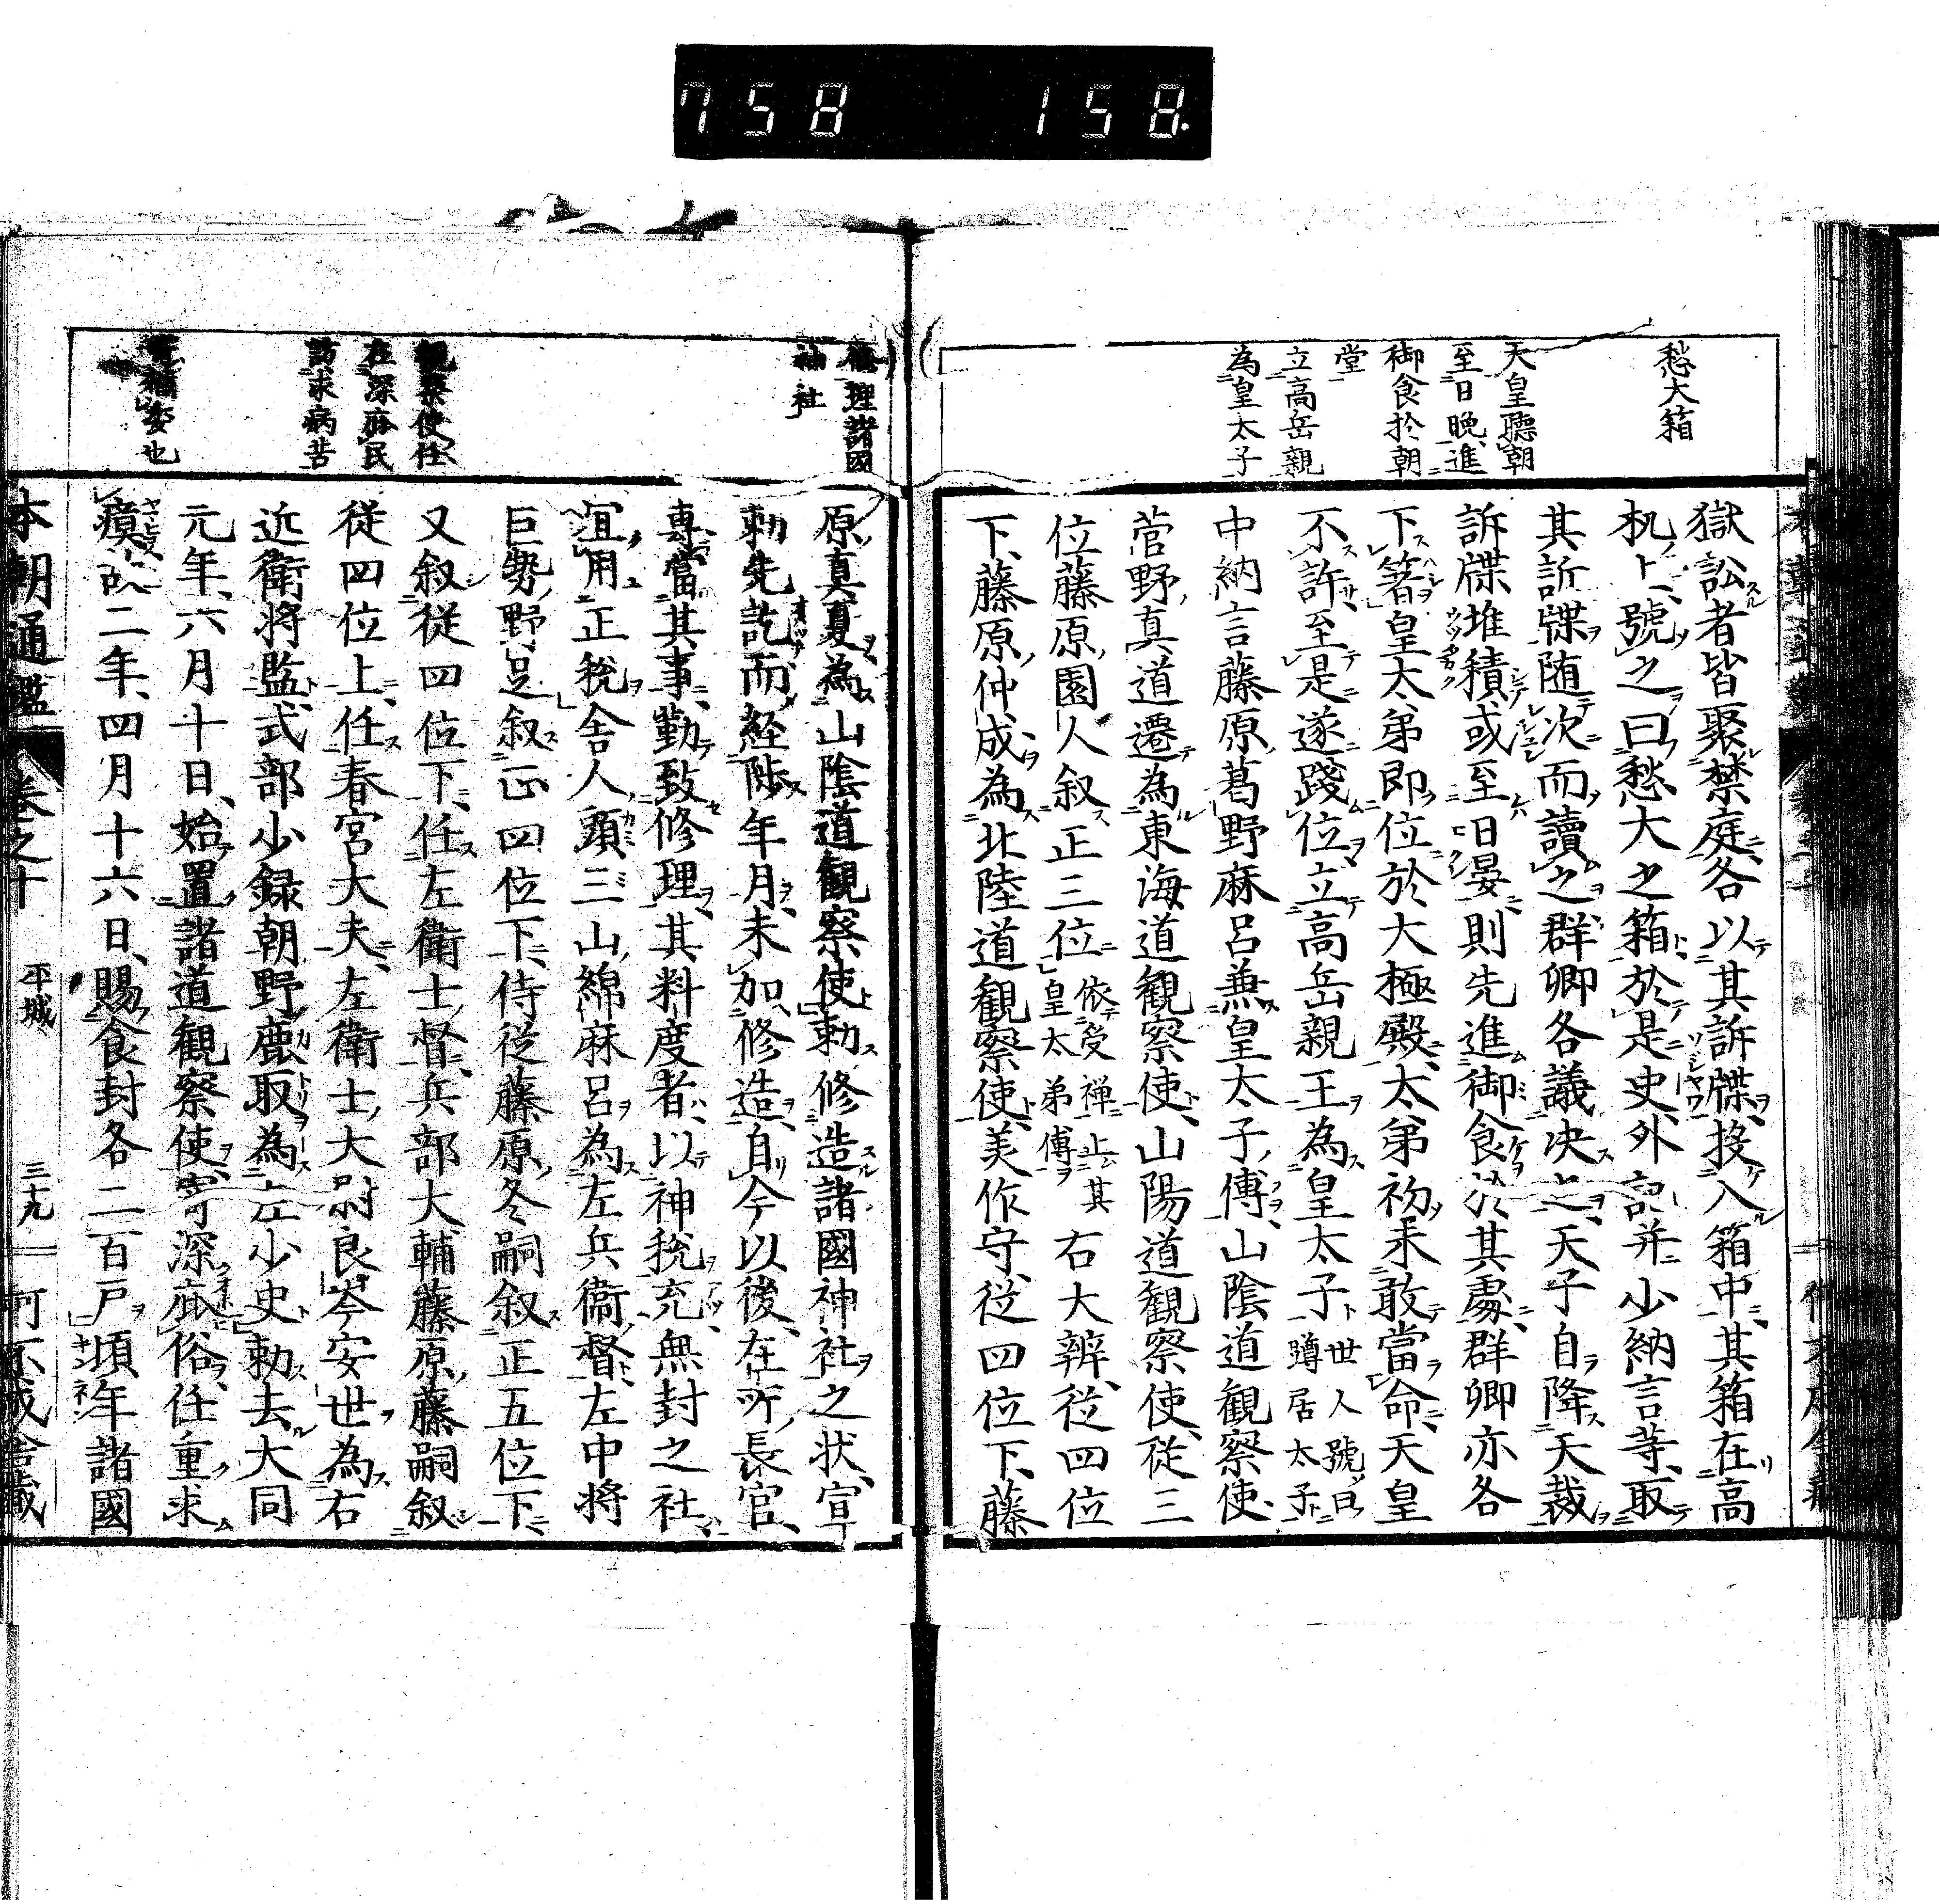 758 158
愁大箱
天皇聽朝
至日晩進
御食於朝
堂
立高岳親
為皇太子
獄訟者皆聚禁庭各以其訴牒投入箱中其箱在高
机上號之曰愁大之箱於是史外記并少納言等取
其訴牒随次而讀之群卿各議决之天子自降天裁
訴牒堆積或至日晏則先進御食於其處群卿亦各
下箸皇太弟即位於大極殿太弟初未敢當命天皇
不許至是遂踐位立高岳親王為皇太子世人號曰蹲居太子
中納言藤原葛野麻呂兼皇太子傅山陰道觀察使
菅野真道遷為東海道觀察使山陽道觀察使從三
位藤原園人叙正三位依受禅止其皇太弟傅右大辨從四位
下藤原仲成為北陸道觀察使美作守從四位下藤
修理諸國
神社
觀察使任
在深麻民
訪求病苦
原真夏為山陰道觀察使勅修造諸國神社之状宣
勅先訖而経陟年月未加修造自今以後在所長官
專當其事勤致修理其料度者以神税充無封之社
宜用正税舎人頭三山綿麻呂為左兵衞督左中將
巨勢野足叙正四位下侍從藤原冬嗣叙正五位下
又叙從四位下任左衛士督兵部大輔藤原藤嗣叙
從四位上任春宮大夫左衛士大尉良岑安世為右
近衛將監式部少録朝野鹿取為左少史勅去大同
元年六月十日始置諸道觀察使寄深俗任重求
瘼二年四月十六日賜食封各二百戸頃年諸國
本朝通鑑 卷之十 平城 三十九